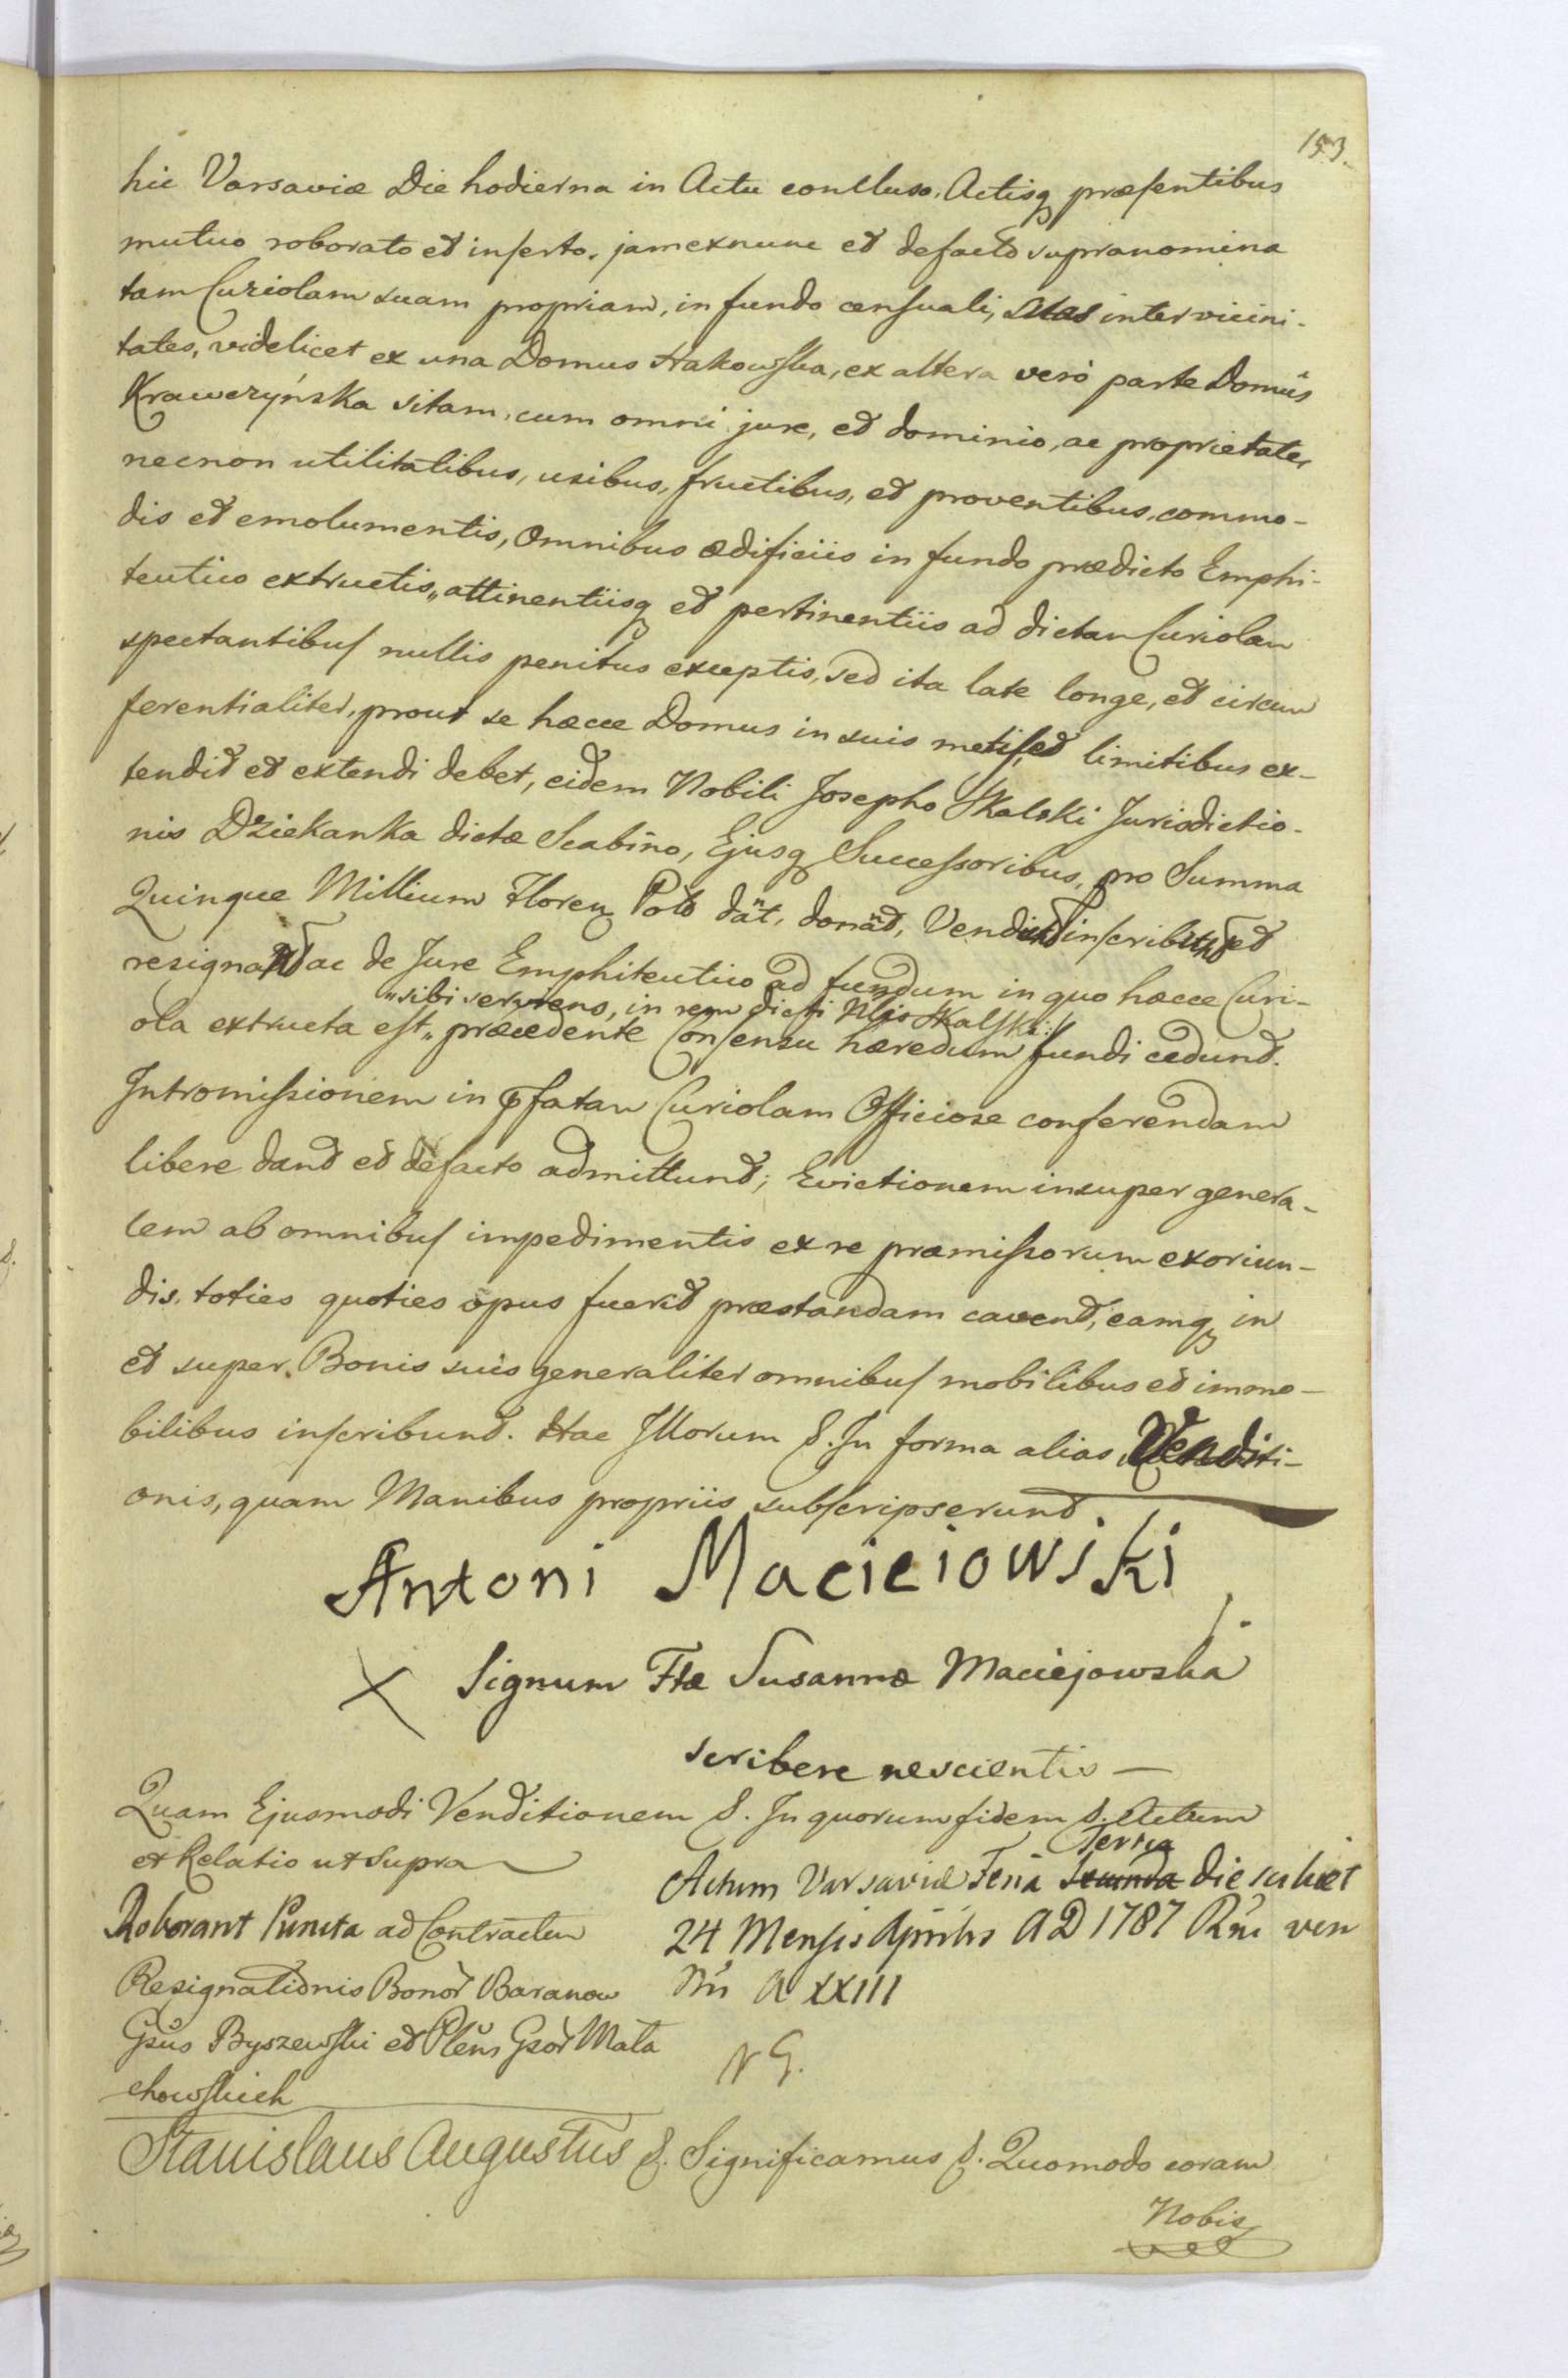 153.
hic Varsaviæ Die hodierna in Actu concluso, Actisq præsentibus
mutuo roborato et inserto, jamexnunc et defacto supranomina
tam Curiolam suam propriam, in fundo censuali, inter vicini-
tates, videlicet ex una Domus Hakowska, ex altera verò parte Domûs
Krawczyńska sitam, cum omni jure, et dominio, ac proprietate,
necnon utilitatibus, usibus, fructibus, et proventibus, commo-
dis et emolumentis, Omnibus ædificiis in fundo prædicto Emphi-
teutico extructis, attinentiisq et pertinentiis ad dictam Curiolam
spectantibus nullis penitus exceptis, sed ita late longe, et circum
ferentialiter, prout se hæcce Domus in suis metis, et limitibus ex-
tendit et extendi debet, eidem Nobili Josepho Skalski Jurisdictio-
nis Dziekanka dictæ Scabino, Ejusq Successoribus, pro Summa
Quinque Millium Floren Pol dãt, donãt, Vendunt inscribunt et
resignant ac de Jure Emphiteutico ad fundum in quo hæcce Curi-
"sibi serviens, in rem dicti Nlis Skalski:/
ola extructa est" præcedente Consensu hæredum fundi cedund.
Intromissionem in pfatam Curiolam Officiose conferendam
libere dand et defacto admittund; Evictionem insuper genera-
lem ab omnibus impedimentis ex re præmissorum exoriun-
dis, toties quoties opus fuerit præstandam cavend, eamq in
et super Bonis suis generaliter omnibus mobilibus et immo-
bilibus inscribund. Hac Illorum &. In forma alias Venditi-
onis, quam Manibus propriis subscripserunt.
Antoni Macieiowski
X Signum Ftæ Susannæ Maciejowska
scribere nescientis —
Quam Ejusmodi Venditionem &. In quorum fidem &. Actum
et Relatio ut supra
Actum Varsaviæ Feria Secunda Tertia die scilicet
24 Mensis Aprilis AD 1787 Rni ven
Rni A XXIII
NG.
Roborant Puncta ad Contractum
Resignationis Bonor Baranow
Gsus Byszewski et Plens Gsor Mała
chowskich
Stanislaus Augustus &. Significamus &. Quomodo coram
Nobis